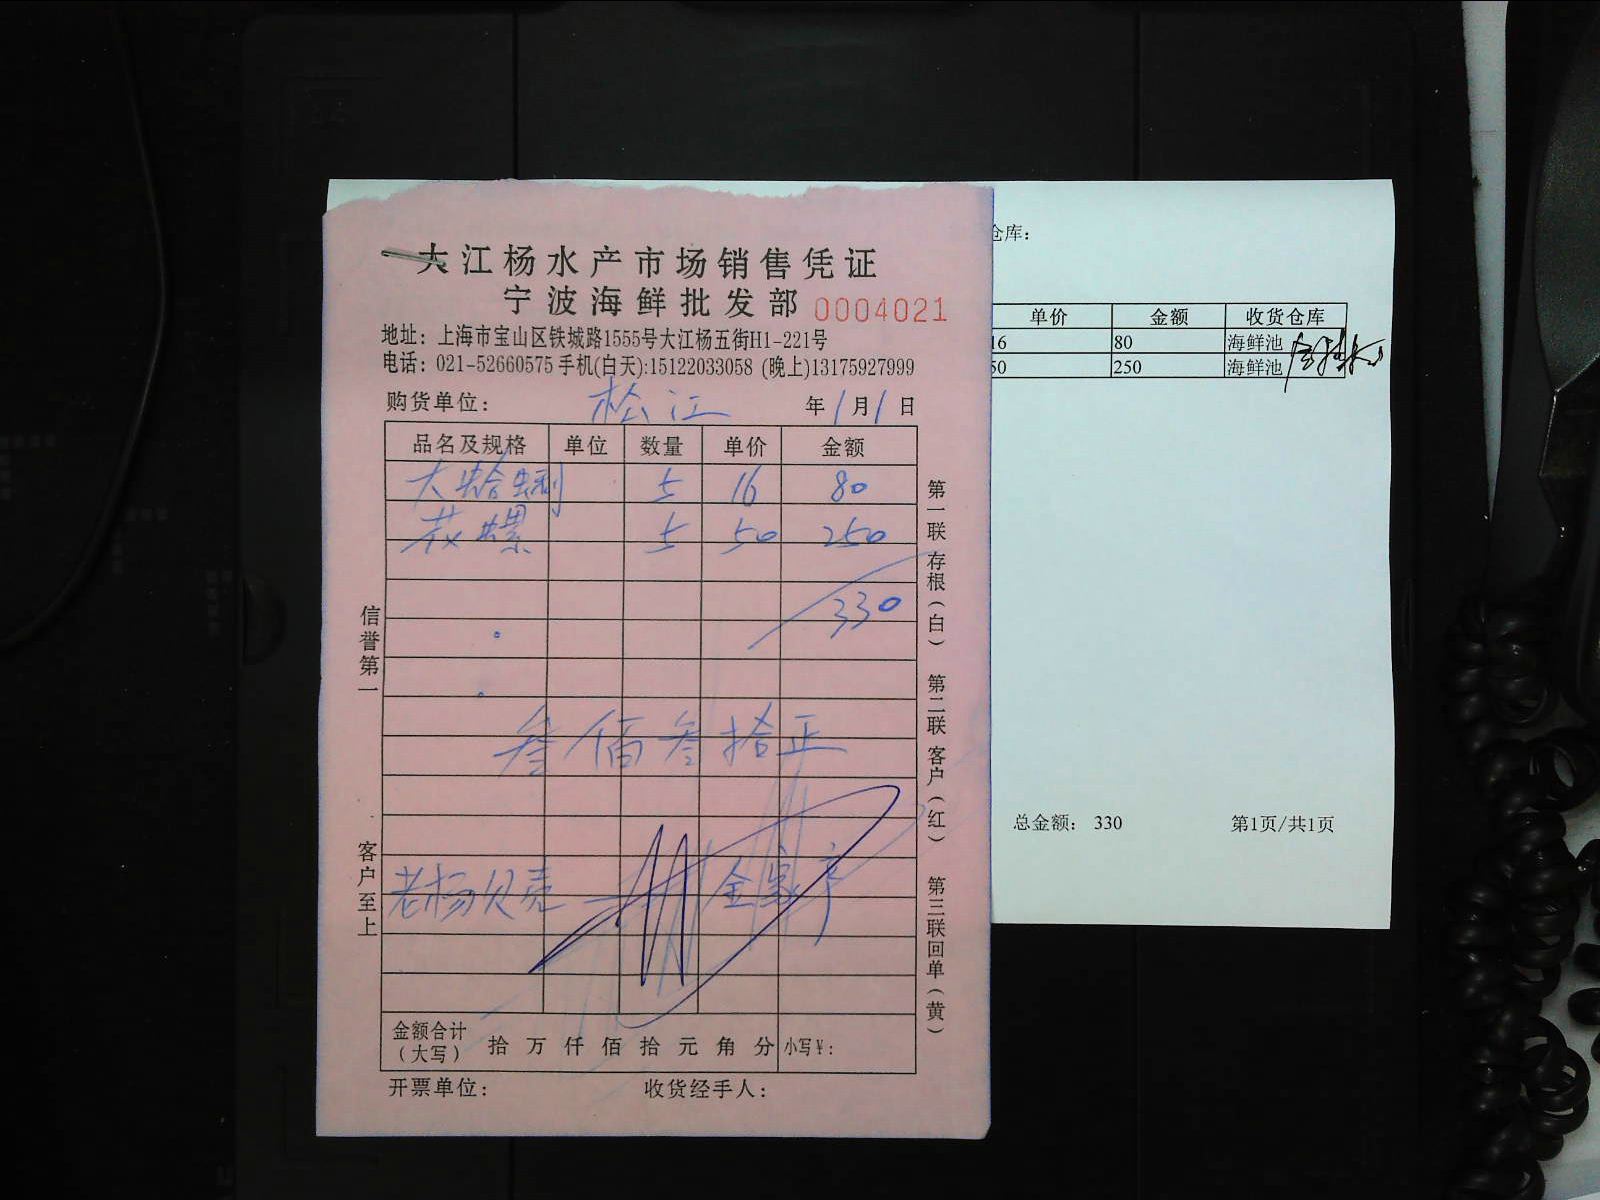 大江杨水产市场销售凭证
宁波海鲜批发部 0004021
地址：上海市宝山区铁城路1555号大江杨五街H1-221号
电话：021-52660575 手机(白天):15122033058 (晚上)13175927999
购货单位： 松江 年1月1日
品名及规格 单位 数量 单价 金额
大蛤蜊 5 16 80
花螺 5 50 250
330
叁佰叁拾正
老杨贝壳
金额合计
（大写） 拾 万 仟 佰 拾 元 角 分 小写¥：
开票单位： 收货经手人：
信誉第一
客户至上
第一联 存根（白） 第二联 客户（红） 第三联 回单（黄）
仓库：
单价 金额 收货仓库
16 80 海鲜池
50 250 海鲜池
总金额： 330 第1页/共1页